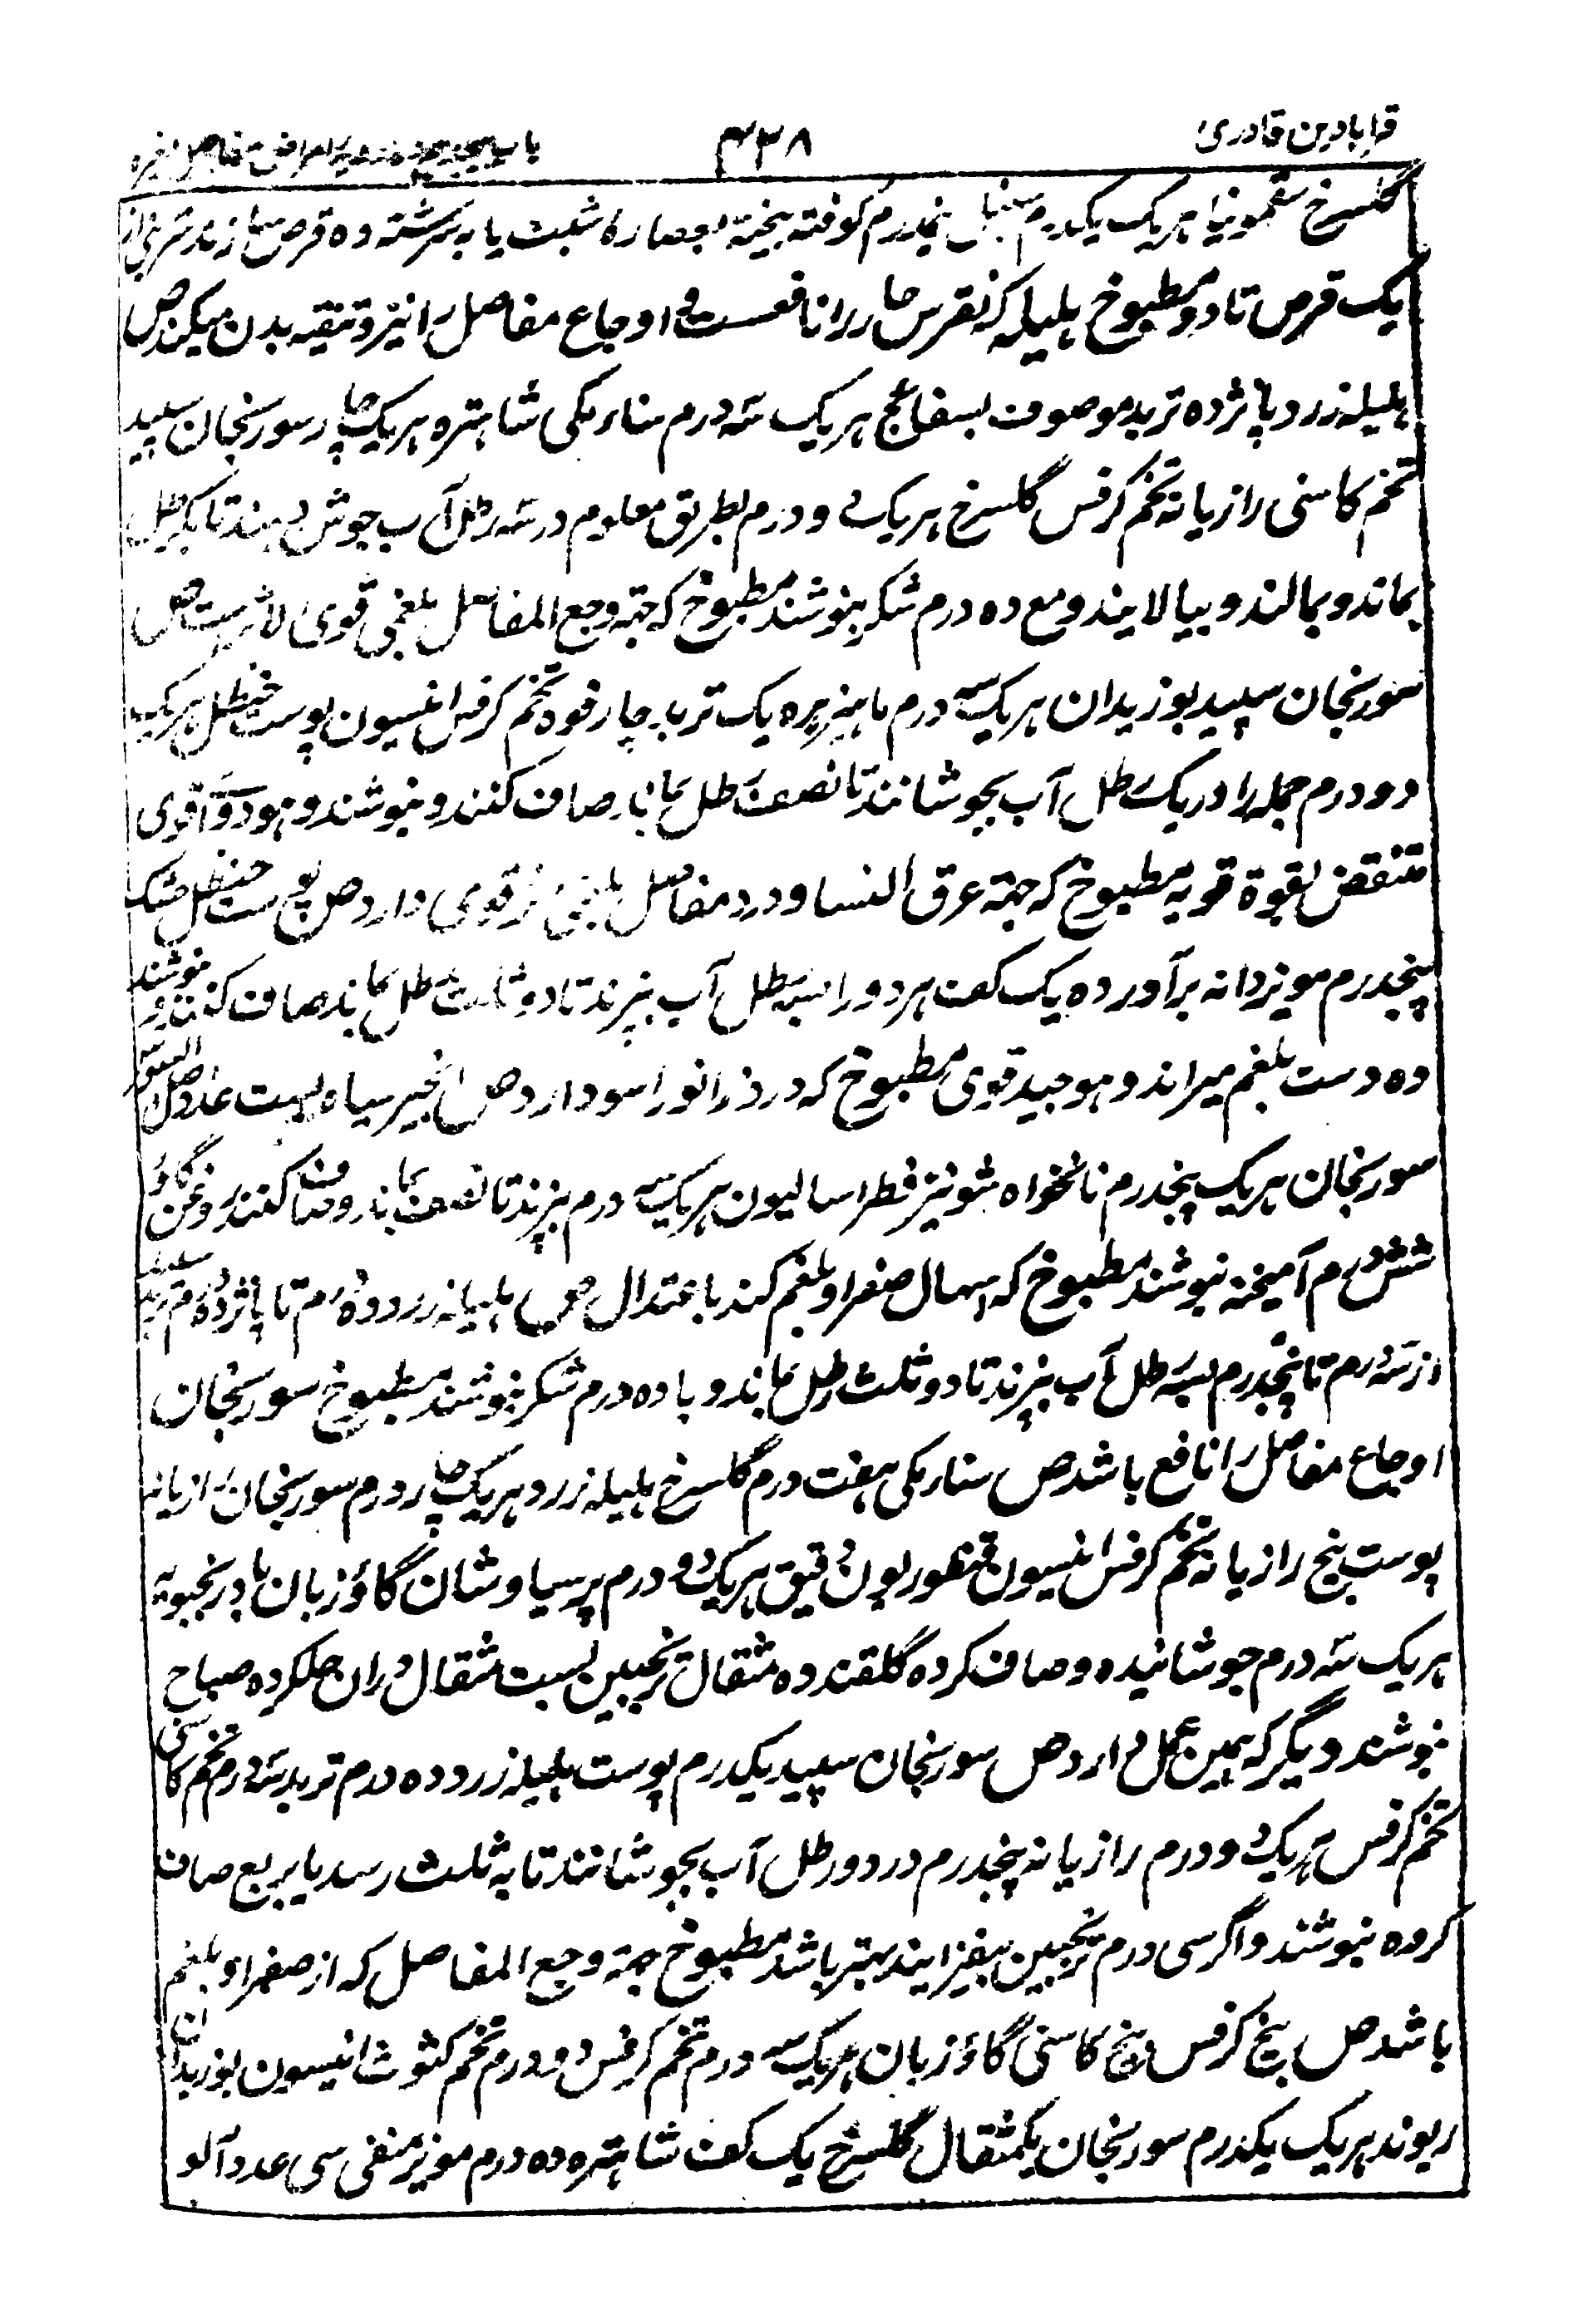 قرابادین قادری
۴۳۸
باب
گلسرخ سقمونیا هریک یکدرم سنبل نیمدرم کوفته بیخته بعصاره شبت یا به سرشته ده قرص سازند شربتی از
یک قرص تا دو مطبوخ هلیله که نقرس حار را نافعست و اوجاع مفاصل را نیز و تنقیه بدن میکند ص
هلیله زرد پانژده تربد موصوف بسفایج هریک سه درم سناء مکی شاهتره هریک چار سورنجان سپید
تخم کاسنی رازیانه تخم کرفس گلسرخ هریک دو درم بطریق معلوم در سه رطل آب جوش دهند تا یکرطل
بماند و بمالند و بپالایند و مع ده درم شکر بنوشند مطبوخ که جهة وجع المفاصل بلغمی قوی الاثرست ص
سورنجان سپید بوزیدان هریک سه درم ماهیزهره یک تربد چار فوه تخم کرفس انیسون پوست حنظل هریک
دو درم جمله را در یک رطل آب بجوشانند تا نصف رطل بماند صاف کنند و بنوشند و هو دواء قوی
متنقض بقوة قویة مطبوخ که جهة عرق النسا و درد مفاصل بلغمی اثر قوی دارد ص پوست حنظل خشک
پنجدرم مویز دانه برآورده یک کف هر دو را بسه رطل آب بپزند تا دو ثلث رطل بماند صاف کنند و بنوشند
ده دست بلغم میراند و هو جید قوی مطبوخ که درد زانو را سود دارد ص انجیر سیاه بیست عدد اصل السوس
سورنجان هریک پنجدرم نانخواه شونیز فطراسالیون هریک سه درم بپزند تا نصف بماند و صاف کنند و روغن گاؤ
شش درم آمیخته بنوشند مطبوخ که اسهال صفرا و بلغم کند باعتدال ص هلیله زرد ده درم تا پانژده درم تربد سپید
از سه درم تا پنجدرم بسه رطل آب بپزند تا دو ثلث رطل بماند و با ده درم شکر بنوشند مطبوخ سورنجان
اوجاع مفاصل را نافع باشد ص سناء مکی هفت درم گلسرخ هلیله زرد هریک چار درم سورنجان رازیانه
پوست بیخ رازیانه تخم کرفس انیسون قنطوریون دقیق هریک دو درم پرسیاوشان گاؤزبان بادرنجبویه
هریک سه درم جوشانیده و صاف کرده گلقند ده مثقال ترنجبین بست مثقال دران حلکرده صباح
بنوشند دیگر که همین عمل دارد ص سورنجان سپید یکدرم پوست هلیله زرد ده درم تربد سه درم تخم کاسنی
تخم کرفس هریک دو درم رازیانه پنجدرم در دو رطل آب بجوشانند تا به ثلث رسد یا بربع صاف
کرده بنوشند و اگر سی درم ترنجبین بیفزایند بهتر باشد مطبوخ جهة وجع المفاصل که از صفرا و بلغم
باشد ص بیخ کرفس بیخ کاسنی گاؤزبان هریک سه درم تخم کرفس دو درم تخم کثوث انیسون بوزیدان
ریوند هریک یکدرم سورنجان یکمثقال گلسرخ یک کف شاهتره ده درم مویز منقی سی عدد آلو